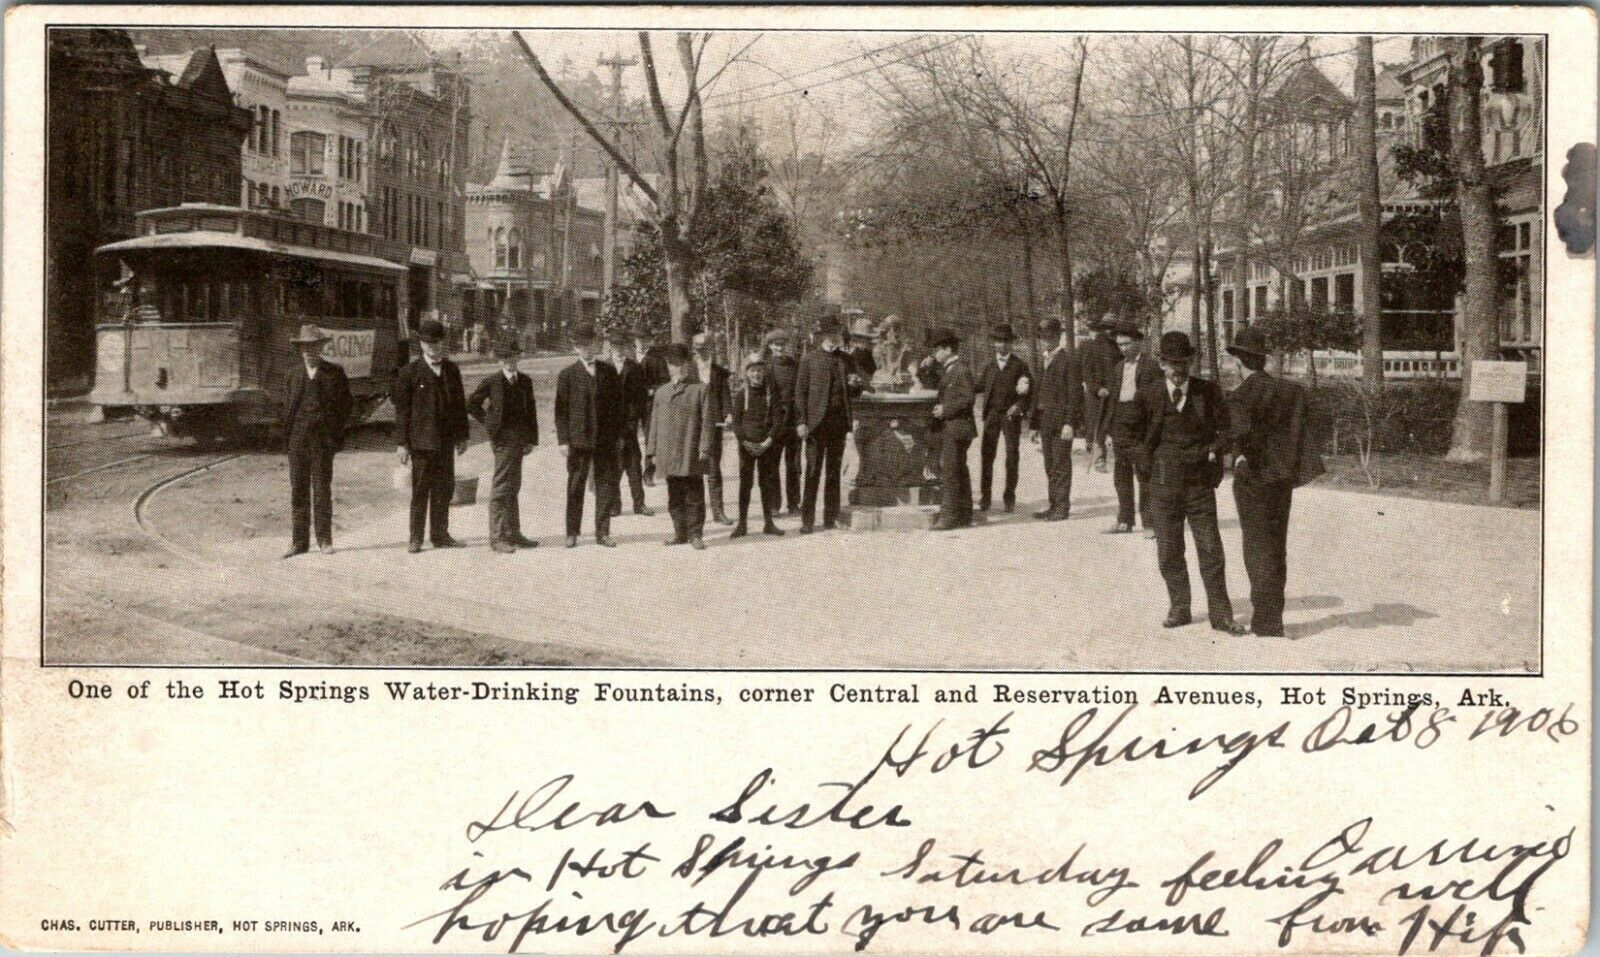 HOWARD
AGING
One of the Hot Springs Water-Drinking Fountains, corner Central and Reservation Avenues, Hot Springs, Ark.
Hot Springs Oct 8 1906
Dear Sister
Arrived
in Hot Springs Saturday feeling well
hoping that you are same from
CHAS. CUTTER, PUBLISHER, HOT SPRINGS, ARK.